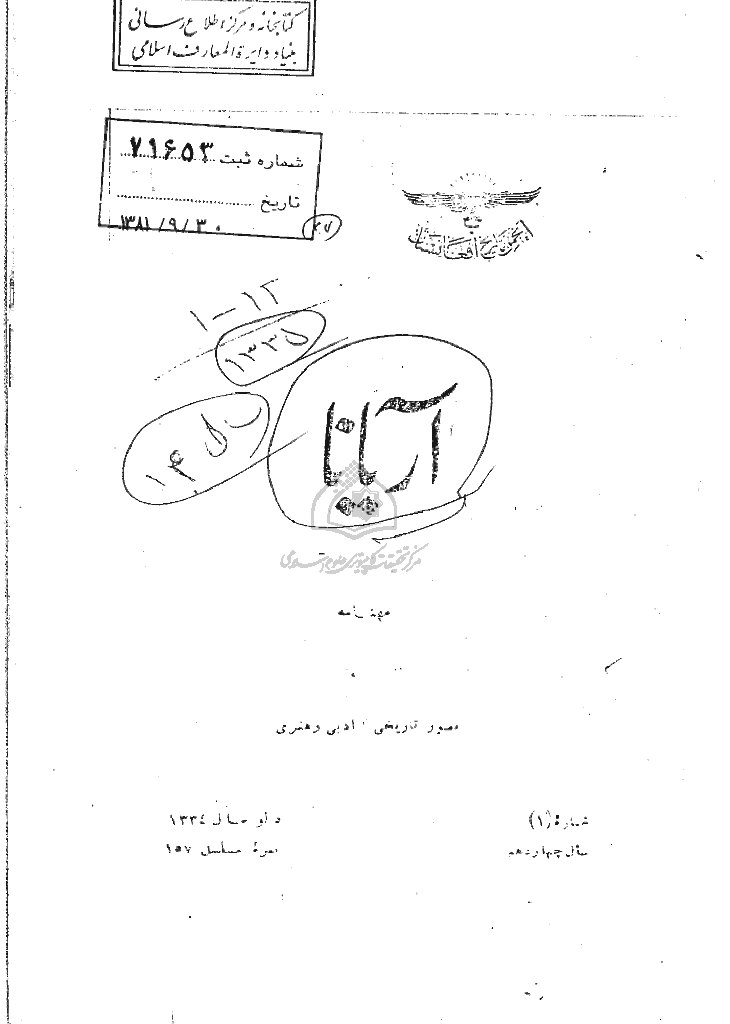 کتابخانه و مرکز اطلاع رسانی
بنیاد دایرة المعارف اسلامی
شماره ثبت ۷۱۶۵۳
تاریخ
۱۳۸۱/۹/۳۰
انجمن تاریخ افغانستان
۱-۱۲
۱۳۳۵
سال
۱۴
آریانا
مرکز تحقیقات کامپیوتری علوم اسلامی
مهنامه
مصور تاریخی ، ادبی و هنری
شمارهٔ (۱)
دلو سال ۱۳۳٤
سال چهاردهم
نمرهٔ مسلسل ۱۵۷